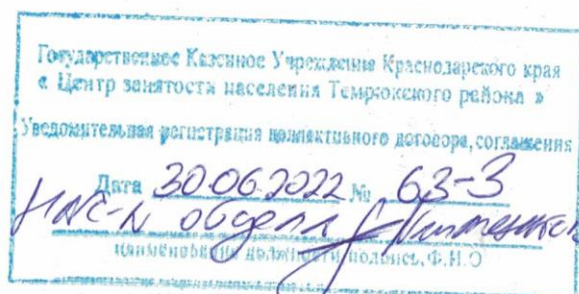 Государственное Казенное Учреждение Краснодарского края
« Центр занятости населения Темрюкского района »
Уведомительная регистрация коллективного договора, соглашения
Дата 30.06.2022 № 63-3
нач-к отдела
наименование должности подпись, Ф.И.О